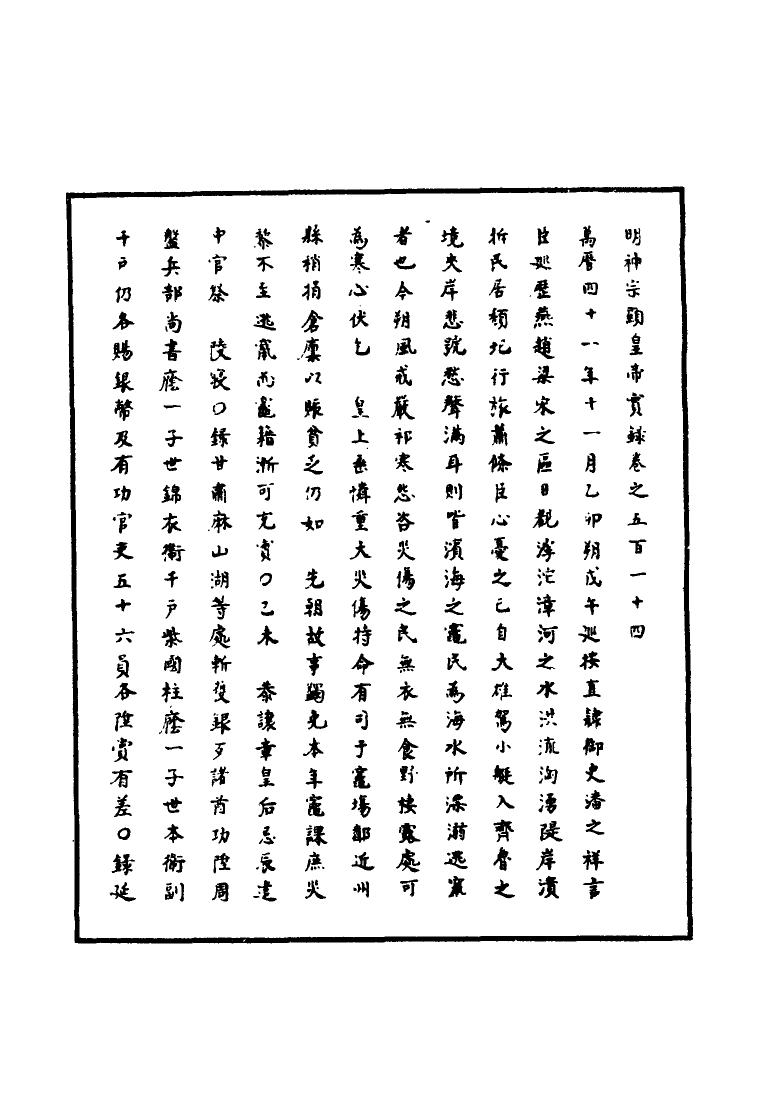 明神宗顯皇帝實錄卷之五百一十四
萬曆四十一年十一月乙卯朔戊午巡按直隸御史潘之祥言
臣廵歷燕趙梁宋之區日觀滹沱漳河之水洪流洶湧隄岸潰
拆民居頹圮行旅蕭條臣心憂之已自大雄駕小艇入齊魯之
境夾岸悲號愁聲滿耳則皆濱海之竈民為海水所渰溺逃竄
者也今朔風戒嚴祁寒怨咨災傷之民無衣無食野棲露處可
為寒心伏乞　皇上垂憐重大災傷特命有司于竈塲鄰近州
縣稍捐倉廩以賑貧乏仍如　先朝故事蠲免本年竈課庶災
黎不至逃竄而竈籍漸可充實○己未　恭讓章皇后忌辰遣
中官祭　陵寢○錄甘肅麻山湖等處斬獲銀歹諸酋功陞周
盤兵部尚書廕一子世錦衣衛千戶柴國柱廕一子世本衛副
千戶仍各賜銀幣及有功官吏五十六員各陞賞有差○錄延